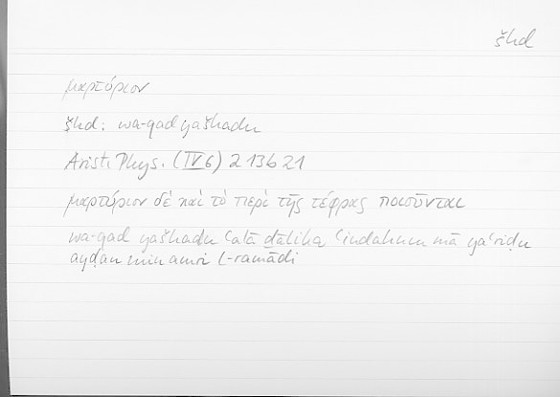 škd
μαρτύριον
škd: wa-qad yaškadu
Arist. Phys. (IV 6) 213b21
μαρτύριον δὲ καὶ τὸ περὶ τῆς τέφρας ποιοῦνται
wa-qad yaškadu ʿalā ḏālika ʿindahum mā yaʿriḍu
ayḍan min amri l-ramādi